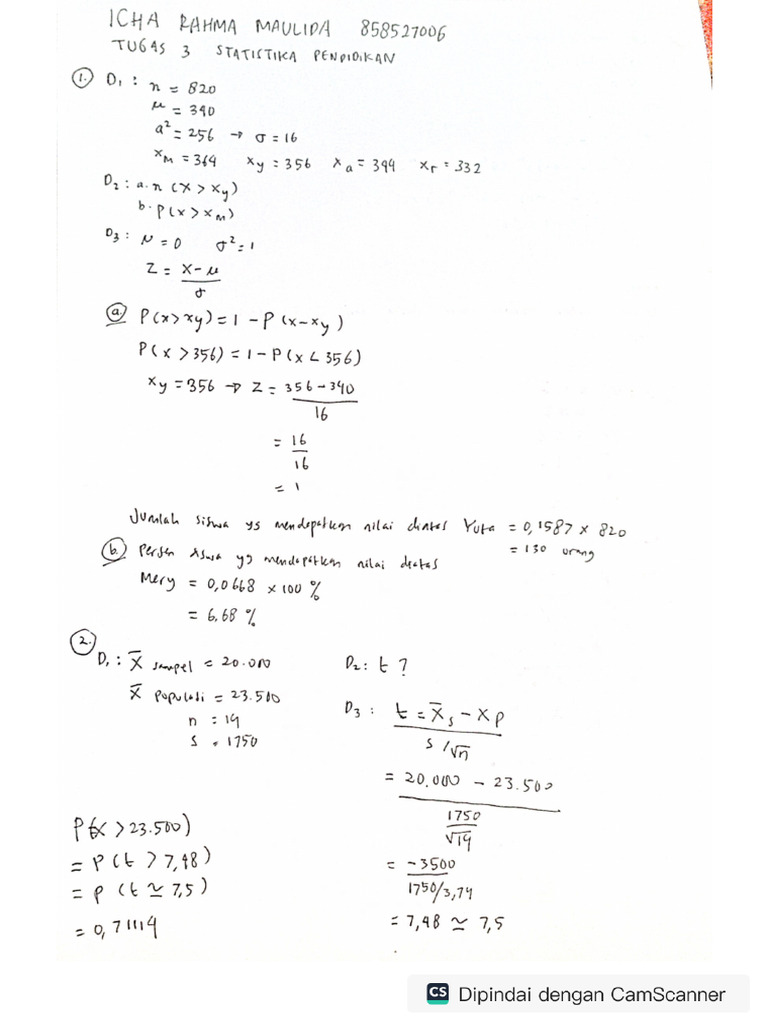 ICHA RAHMA MAULIDA 858527006
TUGAS 3 STATISTIKA PENDIDIKAN
1. D1 : n = 820
μ = 340
a² = 256 → σ = 16
xM = 364 xy = 356 xa = 344 xr = 332
D2 : a. n (x > xy)
b. P(x > xM)
D3 : N = 0 σ² = 1
Z = x - μ
σ
a. P(x > xy) = 1 - P(x - xy)
P(x > 356) = 1 - P(x < 356)
xy = 356 → Z = 356 - 340
16
= 16
16
= 1
Jumlah siswa yg mendapatkan nilai diatas Yuta = 0,1587 x 820
= 130 orang
b. Persen siswa yg mendapatkan nilai diatas
Mery = 0,0668 x 100 %
= 6,68 %
2.
D1 : X̄ sampel = 20.000
X̄ populasi = 23.500
n : 14
s = 1750
D2 : t ?
D3 : t = X̄s - Xp
s/√n
= 20.000 - 23.500
1750
√14
= -3500
1750/3,74
= 7,48 ≃ 7,5
P(x > 23.500)
= P(t > 7,48)
= P (t ≃ 7,5)
= 0,71114
CS Dipindai dengan CamScanner